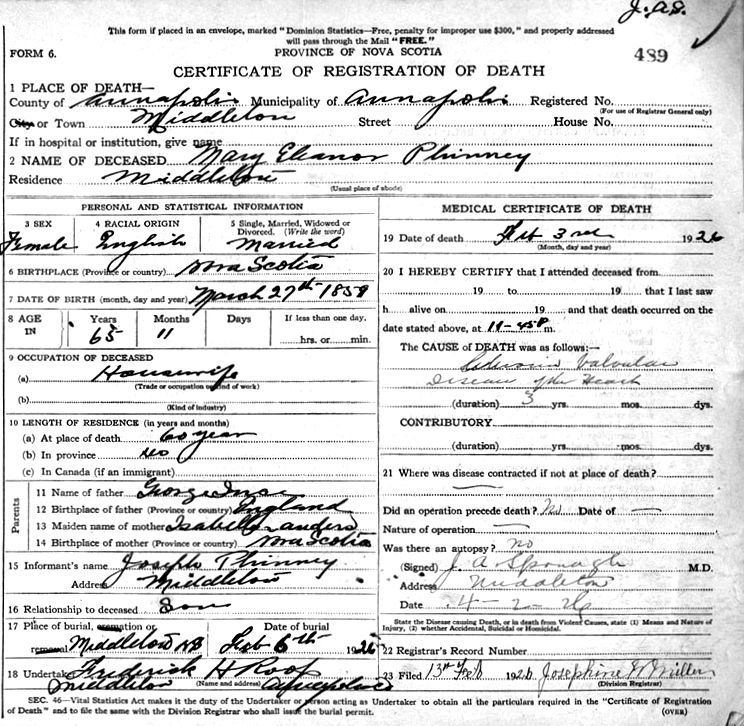 J.A.S.
This form if placed in an envelope, marked "Dominion Statistics—Free, penalty for improper use $300," and properly addressed
will pass through the Mail "FREE."
FORM 6.
PROVINCE OF NOVA SCOTIA
489
CERTIFICATE OF REGISTRATION OF DEATH
1 PLACE OF DEATH—
County of Annapolis Municipality of Annapolis Registered No.
(For use of Registrar General only)
City or Town Middleton Street House No.
If in hospital or institution, give name
2 NAME OF DECEASED Mary Eleanor Phinney
Residence Middleton
(Usual place of abode)
PERSONAL AND STATISTICAL INFORMATION
3 SEX 4 RACIAL ORIGIN 5 Single, Married, Widowed or Divorced. (Write the word)
Female English Married
6 BIRTHPLACE (Province or country) Nova Scotia
7 DATE OF BIRTH (month, day and year) March 27th 1859
8 AGE IN Years Months Days If less than one day.
65 11 hrs. or min.
9 OCCUPATION OF DECEASED
(a) Housewife
(Trade or occupation or kind of work)
(b)
(Kind of industry)
10 LENGTH OF RESIDENCE (in years and months)
(a) At place of death 60 year
(b) In province
(c) In Canada (if an immigrant)
Parents
11 Name of father George
12 Birthplace of father (Province or country) England
13 Maiden name of mother Isabella
14 Birthplace of mother (Province or country) Nova Scotia
15 Informant's name Joseph Phinney
Address Middleton
16 Relationship to deceased Son
17 Place of burial, cremation or removal Date of burial
Middleton NS Feb 6th 1926
18 Undertaker Frederick H Roop
Middleton (Name and address)
MEDICAL CERTIFICATE OF DEATH
19 Date of death Feb 3rd 1926
(Month, day and year)
20 I HEREBY CERTIFY that I attended deceased from
19 to 19 that I last saw
h alive on 19 and that death occurred on the
date stated above, at 11-45P m.
The CAUSE of DEATH was as follows:—
Valvular
Disease of the Heart
(duration) 3 yrs. mos. dys.
CONTRIBUTORY
(duration) yrs. mos. dys.
21 Where was disease contracted if not at place of death?
Did an operation precede death? No Date of —
Nature of operation —
Was there an autopsy? No
(Signed) J. A. Sponagle M.D.
Address Middleton
Date 4-2-26
State the Disease causing Death, or in death from Violent Causes, state (1) Means and Nature of
Injury, (2) whether Accidental, Suicidal or Homicidal.
22 Registrar's Record Number
23 Filed 13th Feb 1926 Josephine Miller
(Division Registrar)
SEC. 46—Vital Statistics Act makes it the duty of the Undertaker or person acting as Undertaker to obtain all the particulars required in the "Certificate of Registration
of Death" and to file the same with the Division Registrar who shall issue the burial permit. (OVER)